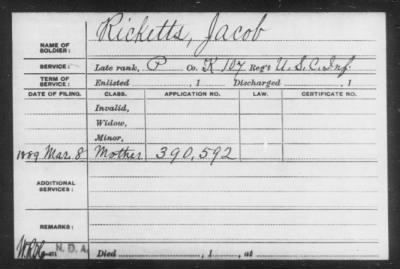 NAME OF SOLDIER: Ricketts, Jacob
SERVICE: Late rank, P Co. K 107 Reg't U. S. C. Inf.
TERM OF SERVICE: Enlisted , 1 Discharged , 1
DATE OF FILING. CLASS. APPLICATION NO. LAW. CERTIFICATE NO.
Invalid,
Widow,
Minor,
1889 Mar. 8 Mother 390,592
ADDITIONAL SERVICES:
REMARKS:
N. D. A.
Died , 1 , at